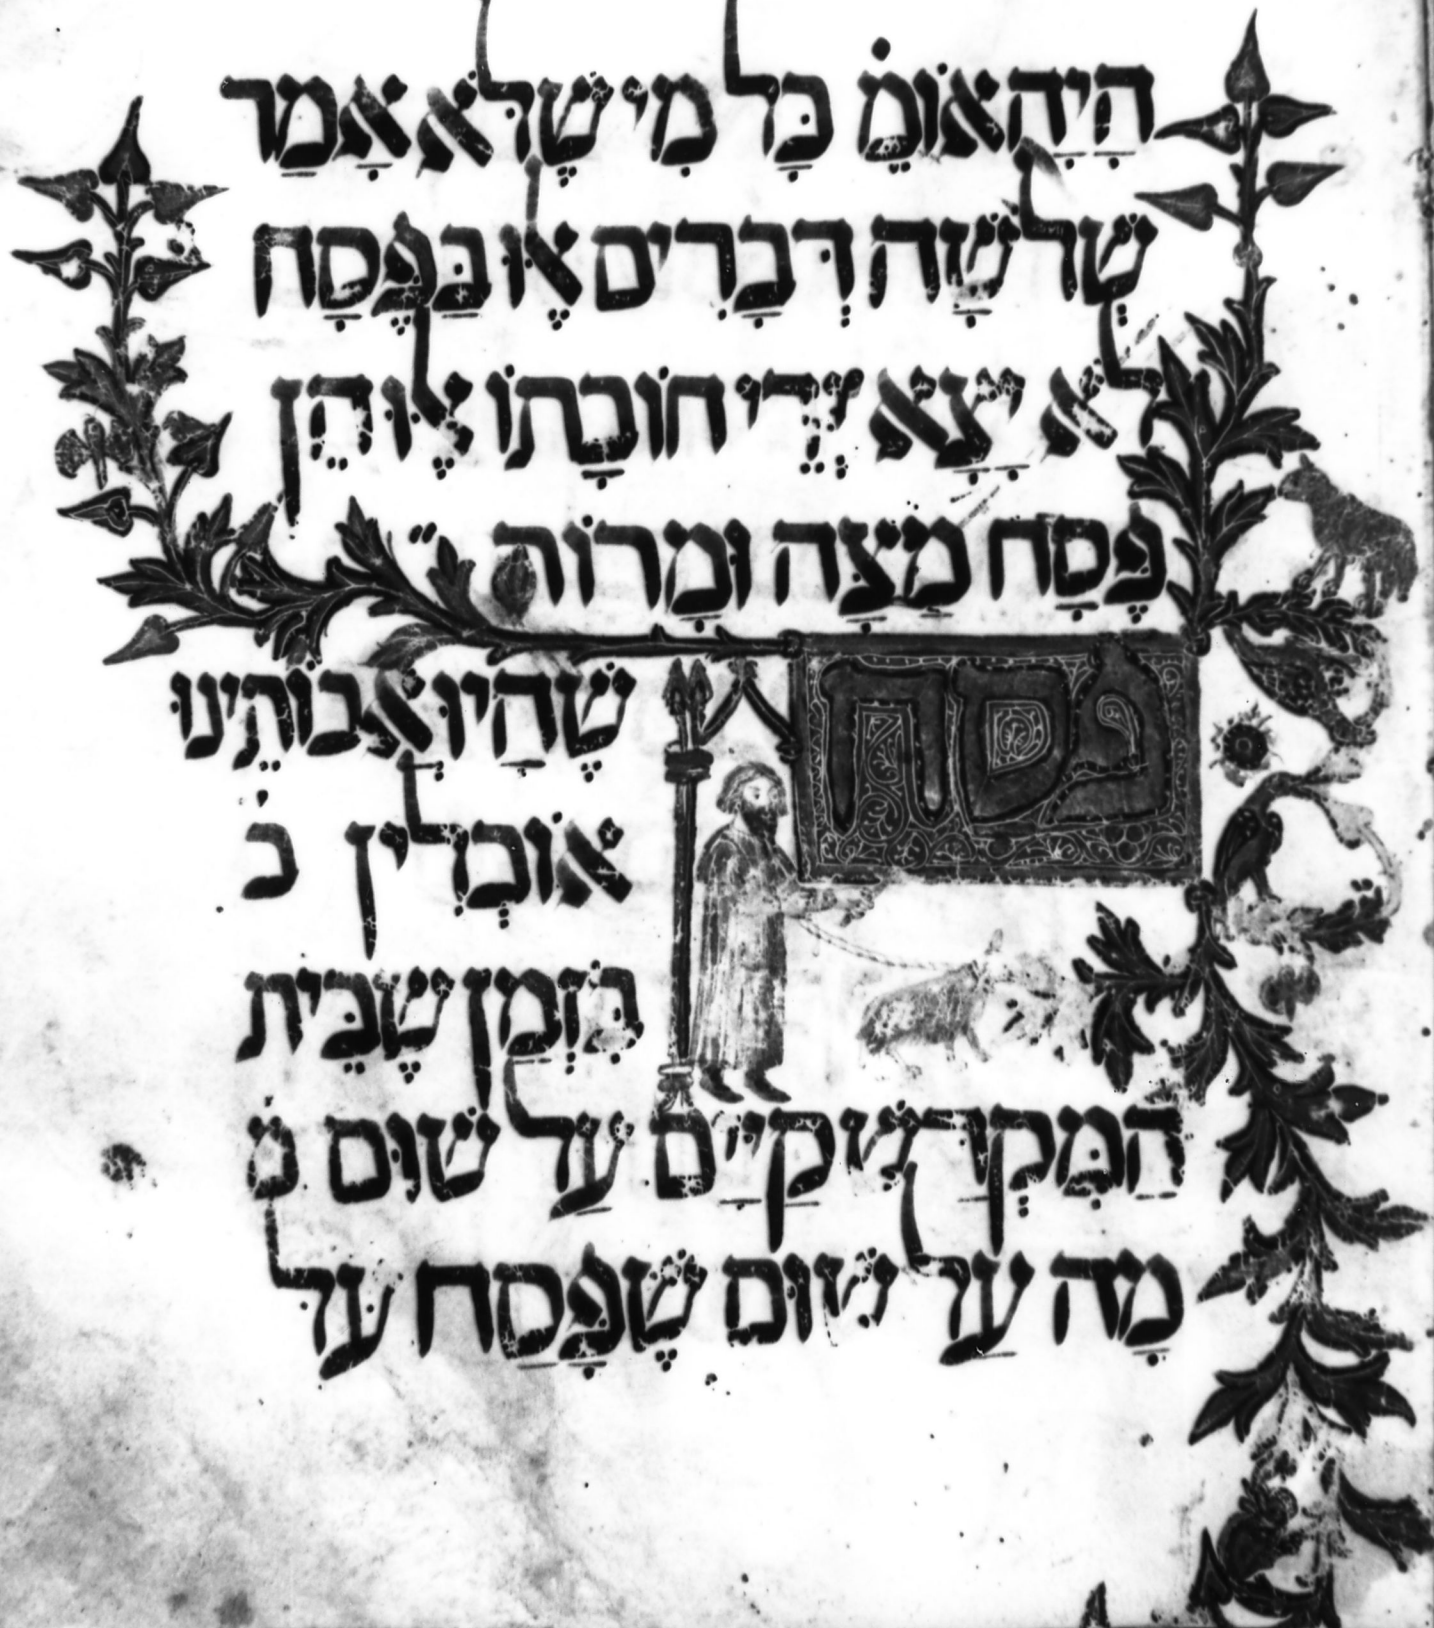 היה אומ כל מי שלא אמר
שלשה דברים אלו בפסח
לא יצא ידי חובתו אלו הן
פסח מצה ומרור
פסח שהיו אבותינו
אוכלין ב
בזמן שבית
המקדש קיים על שום מ
מה על שום שפסח על